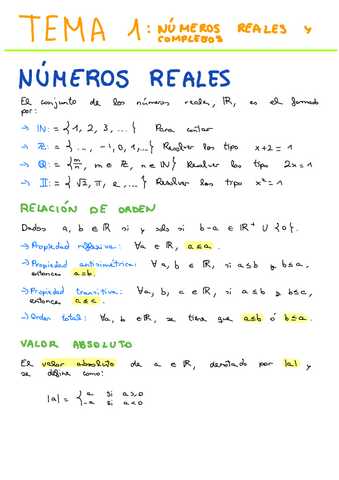 TEMA 1: NÚMEROS REALES Y
COMPLEJOS
NÚMEROS REALES
El conjunto de los números reales, ℝ, es el formado
por:
→ ℕ: = {1, 2, 3, ...} Para contar
→ ℤ: = {..., -1, 0, 1, ...} Resolver los tipo x+2 = 1
→ ℚ: = {m/n, m ∈ ℤ, n ∈ ℕ} Resolver los tipo 2x = 1
→ 𝕀: = {√2, π, e, ...} Resolver los tipo x² = 1
RELACIÓN DE ORDEN
Dados a, b ∈ ℝ si y solo si b-a ∈ ℝ⁺ ∪ {0}.
→ Propiedad reflexiva: ∀a ∈ ℝ, a≤a.
→ Propiedad antisimétrica: ∀a, b ∈ ℝ, si a≤b y b≤a,
entonces a=b.
→ Propiedad transitiva: ∀a, b, c ∈ ℝ, si a≤b y b≤c,
entonces a≤c.
→ Orden total: ∀a, b ∈ ℝ, se tiene que a≤b ó b≤a.
VALOR ABSOLUTO
El valor absoluto de a ∈ ℝ, denotado por |a| y
se define como:
|a| = { a si a≥0
-a si a<0